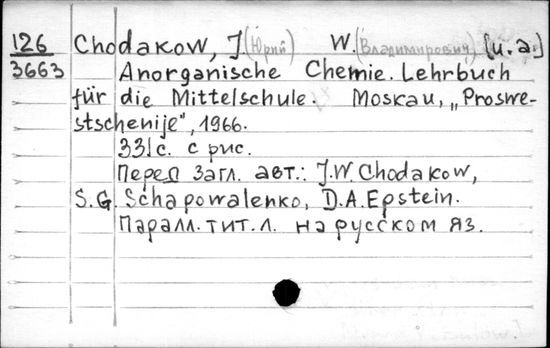 126 Chodakow, J.(Юрий) W.(Владимирович) [u.a.]
3663 Anorganische Chemie. Lehrbuch
für die Mittelschule. Moskau, „Proswe-
stschenije", 1966.
331с. с рис.
Перед загл. авт.: J.W. Chodakow,
S.G. Schapowalenko, D.A. Epstein.
Паралл. тит. л. на русском яз.